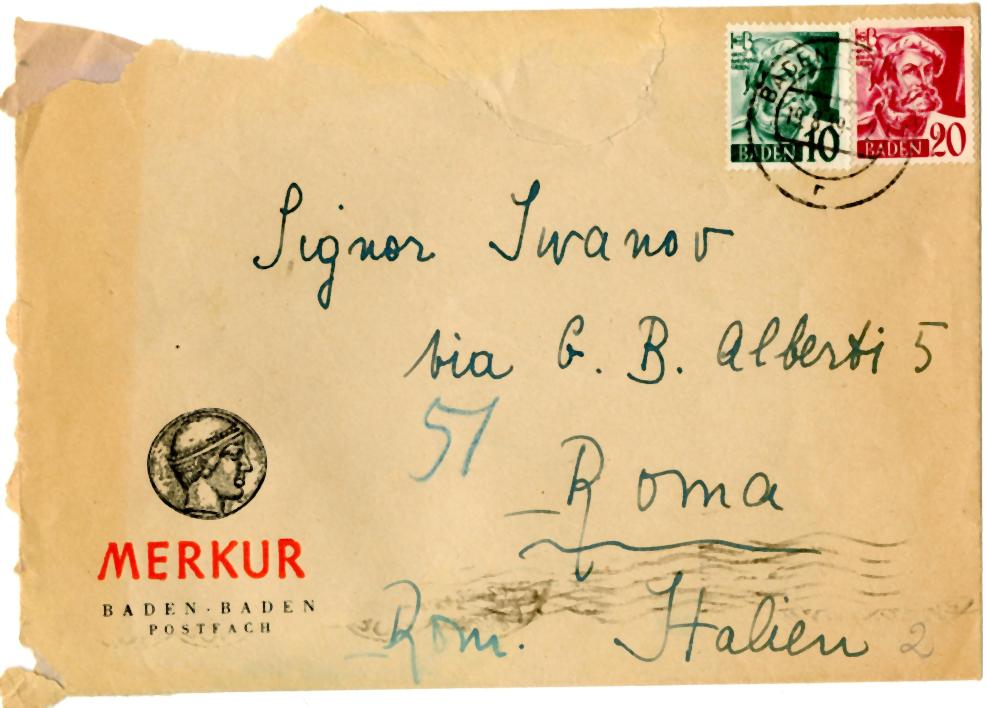 BADEN 10
BADEN 20
BADEN
r
Signor Iwanov
via G. B. Alberti 5
51
Roma
MERKUR
BADEN-BADEN
POSTFACH
Rom. Italien 2